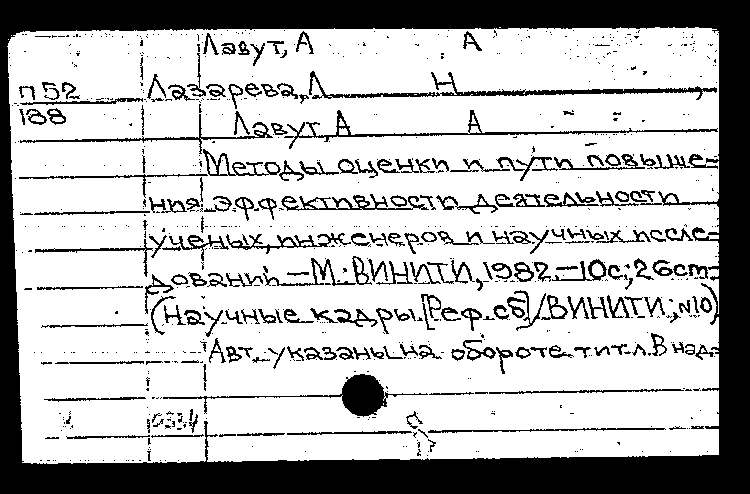 Лавут, А А
п52 Лазарева, Л Н ,
188
Лавут, А А
Методы оценки и пути повыше-
ния эффективности деятельности
ученых, инженеров и научных иссле-
дований. — М.: ВИНИТИ, 1982. — 10с; 26cm.
(Научные кадры. [Реф. сб] / ВИНИТИ; №10)
Авт. указаны на обороте тит. л. В над-